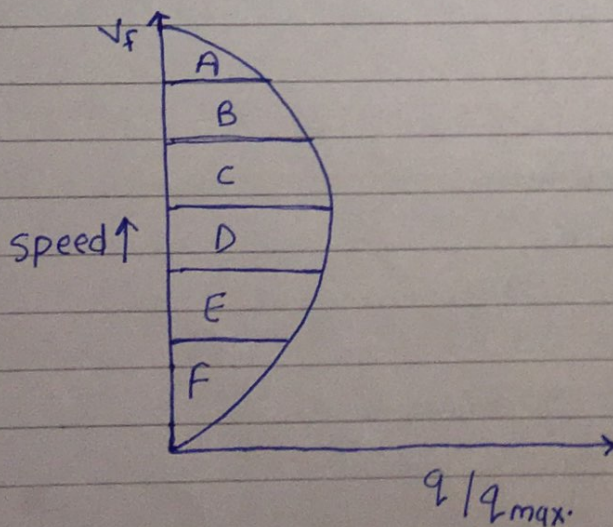 Vf
A
B
C
speed↑ D
E
F
q/qmax.